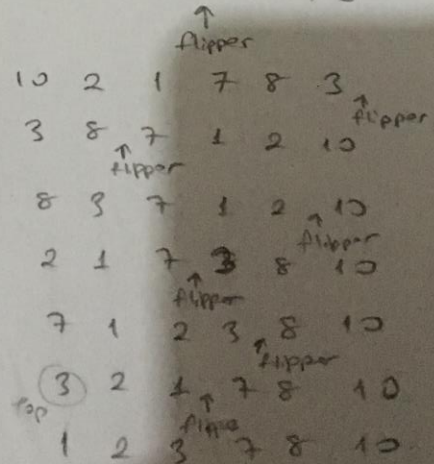 ↑
flipper
10 2 1 7 8 3
↑
flipper
3 8 7 1 2 10
↑
flipper
8 3 7 1 2 10
↑
flipper
2 1 7 3 8 10
↑
flipper
7 1 2 3 8 10
↑
flipper
3 2 1 7 8 10
top
↑
flippe
1 2 3 7 8 10